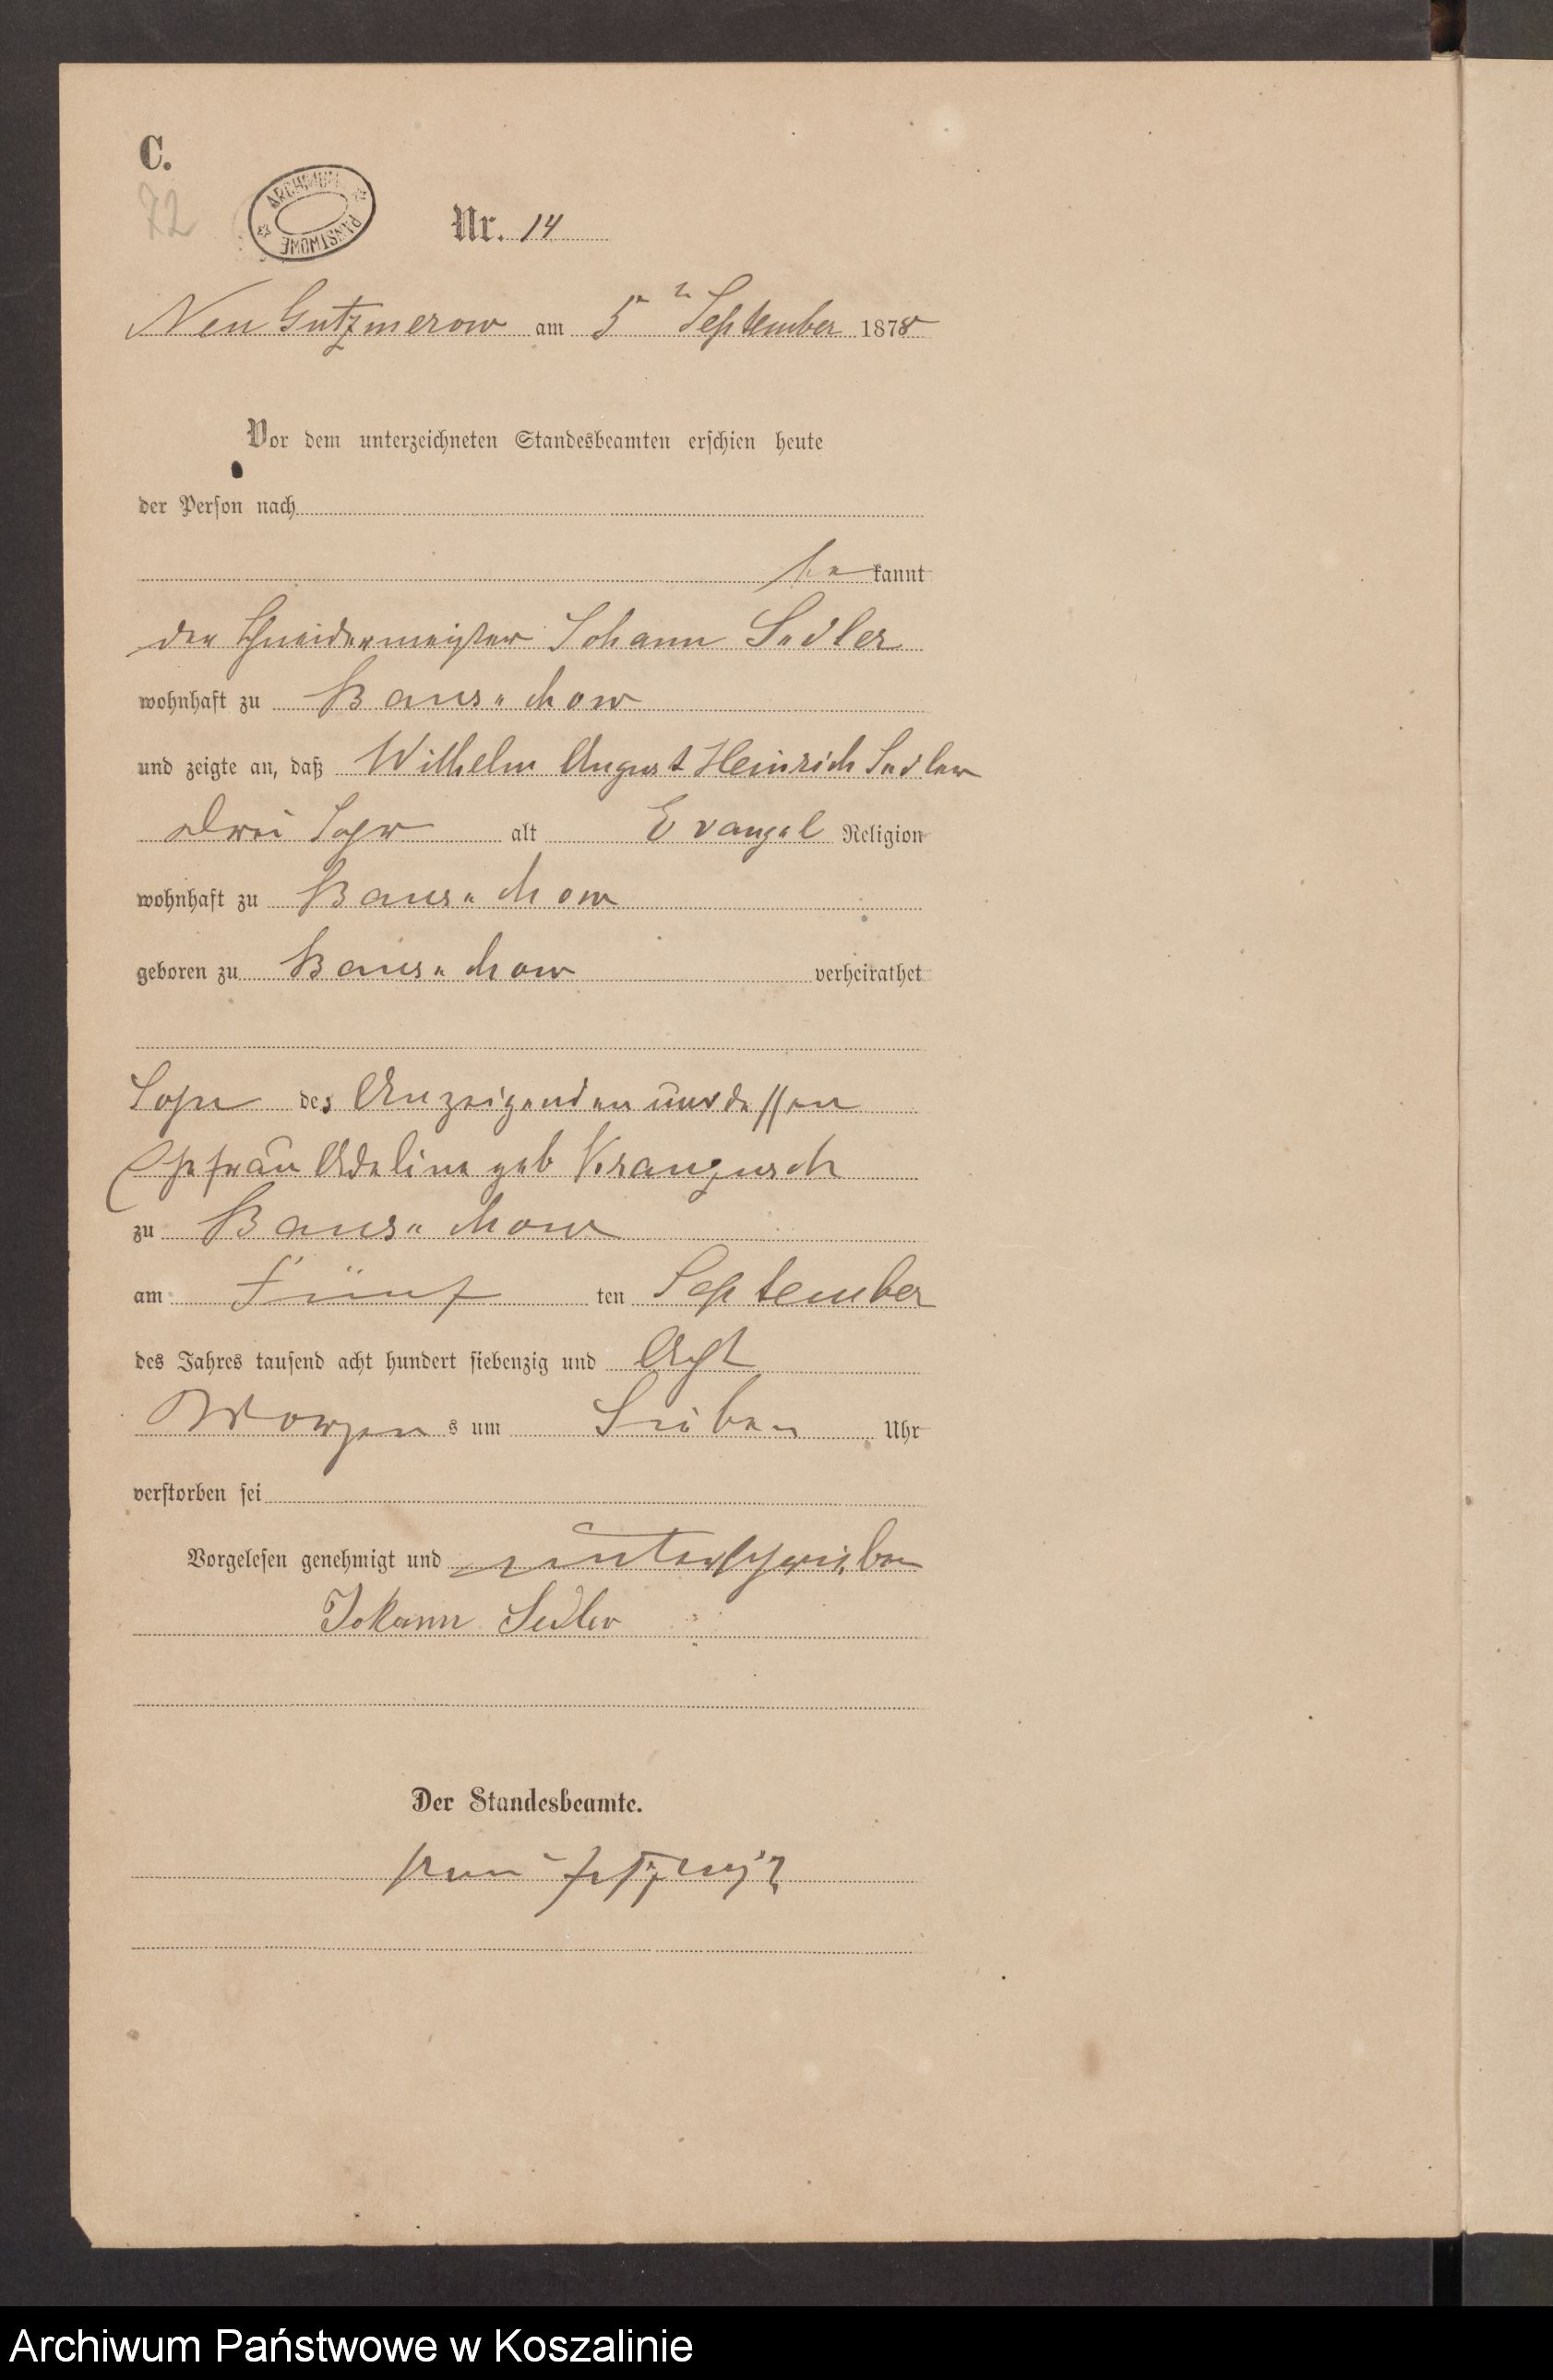 C.
72
ARCHIWUM PAŃSTWOWE
Nr. 14
Neu Gutzmerow am 5n September 1878
Vor dem unterzeichneten Standesbeamten erschien heute
der Person nach
be kannt
der Schneidermeister Johann Sedler
wohnhaft zu Banse chow
und zeigte an, daß Wilhelm August Heinrich Sedler
Drei Jahr alt Evangel Religion
wohnhaft zu Banse chow
geboren zu Banse chow verheirathet
Sohn des Anzeigenden und dessen
Ehefrau Adeline geb Krangusch
zu Banse chow
am Fünf ten September
des Jahres tausend acht hundert siebenzig und Acht
Morgen s um Sieben Uhr
verstorben sei
Vorgelesen genehmigt und unterschrieben
Johann Sedler
Der Standesbeamte.
Archiwum Państwowe w Koszalinie